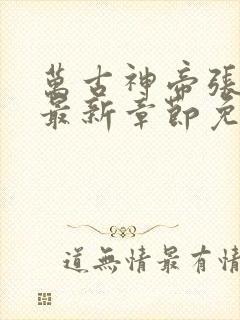 萬古神帝張
最新章節免
道無情最有情